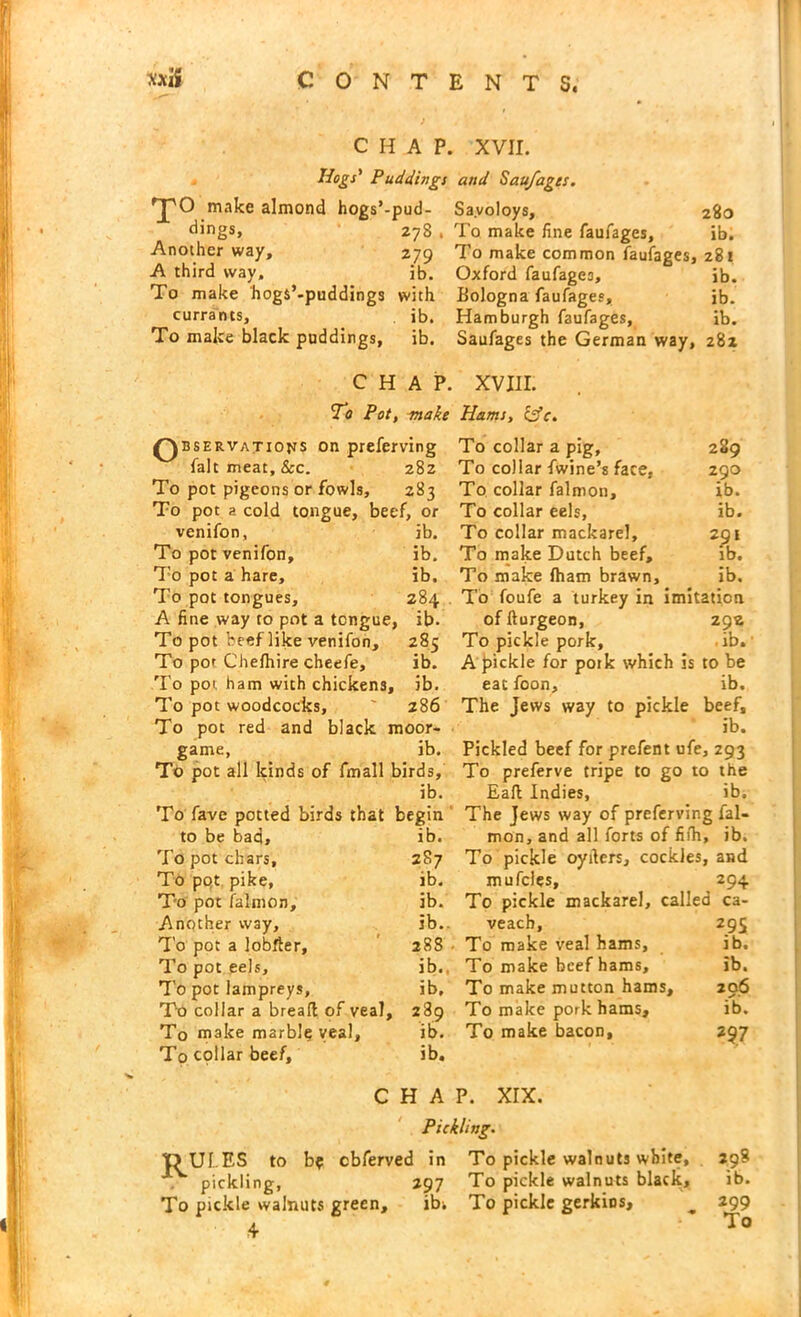 xxii CONTENTS.
CHAP. XVII.
Hogs' Puddings and Sauſages.
TO make almond hogs'-pud-
dings, 278
Another way, 279
A third way. ib.
To make hogs'-puddings with
currants, ib.
To make black puddings, ib.
Savoloys, 280
To make fine ſauſages, ib.
To make common ſauſages, 281
Oxford ſauſages, ib.
Bologna ſauſages, ib.
Hamburgh ſauſages, ib.
Sauſages the German way, 282
CHAP. XVIII.
To Pot, make Hams, &c.
OBSERVATIONS on preſerving
ſalt meat, &c. 282
To pot pigeons or fowls, 283
To pot a cold tongue, beef, or
veniſon, ib.
To pot veniſon, ib.
To pot a hare, ib.
To pot tongues, 284
A fine way to pot a tongue, ib.
To pot beef like veniſon, 285
To pot Cheſhire cheeſe, ib.
To pot ham with chickens, ib.
To pot woodcocks, 286
To pot red and black moor-
game, ib.
To pot all kinds of ſmall birds,
ib.
To ſave potted birds that begin
to be bad, ib.
To pot chars, 287
To pot pike, ib.
To pot ſalmon, ib.
Another way, ib.
To pot a lobſter, 288
To pot eels, ib.
To pot lampreys, ib.
To collar a breaſt of veal, 289
To make marble veal, ib.
To collar beef, ib.
To collar a pig, 289
To collar ſwine's face, 290
To collar ſalmon, ib.
To collar eels, ib.
To collar mackarel, 291
To make Dutch beef, ib.
To make ſham brawn, ib.
To ſouſe a turkey in imitation
of ſturgeon, 292
To pickle pork, ib.
A pickle for pork which is to be
eat ſoon, ib.
The Jews way to pickle beef,
ib.
Pickled beef for preſent uſe, 293
To preſerve tripe to go to the
Eaſt Indies, ib.
The Jews way of preſerving ſal-
mon, and all ſorts of fiſh, ib.
To pickle oyſters, cockles, and
muſcles, 294
To pickle mackarel, called ca-
veach, 295
To make veal hams, ib.
To make beef hams, ib.
To make mutton hams, 296
To make pork hams, ib.
To make bacon, 297
CHAP. XIX.
Pickling.
RULES to be obſerved in
pickling, 297
To pickle walnuts green, ib.
To pickle walnuts white, 298
To pickle walnuts black, ib.
To pickle gerkins, 299
4 To